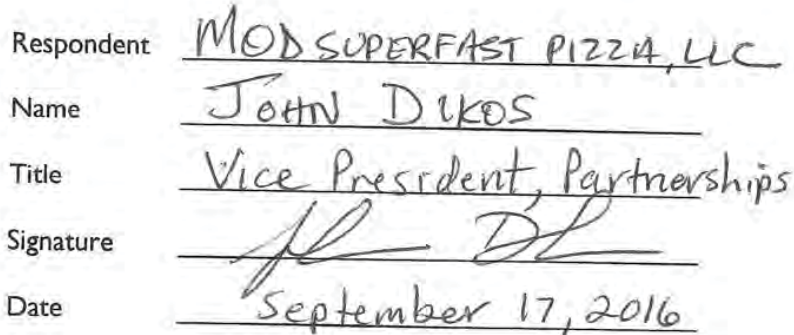 Respondent MOD SUPERFAST PIZZA, LLC
Name JOHN DIKOS
Title Vice President, Partnerships
Signature
Date September 17, 2016